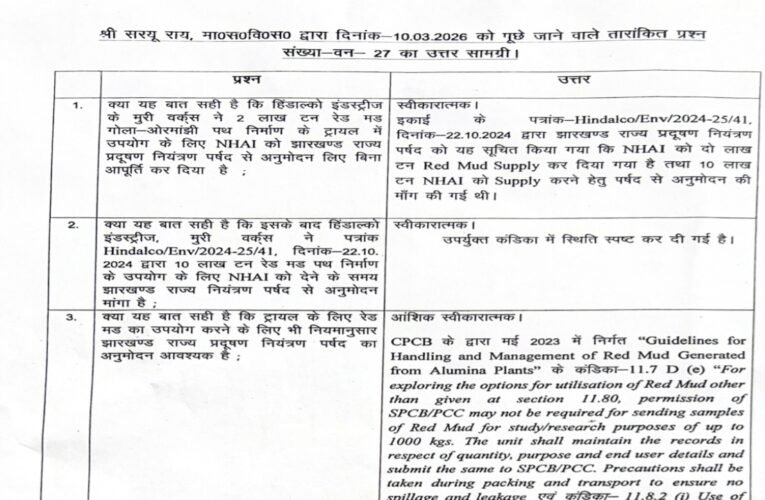 श्री सरयू राय, मा०स०वि०स० द्वारा दिनांक–10.03.2026 को पूछे जाने वाले तारांकित प्रश्न
संख्या–वन– 27 का उत्तर सामग्री।
प्रश्न
उत्तर
1.
क्या यह बात सही है कि हिंडाल्को इंडस्ट्रीज
के मुरी वर्क्स ने 2 लाख टन रेड मड
गोला–ओरमांझी पथ निर्माण के ट्रायल में
उपयोग के लिए NHAI को झारखण्ड राज्य
प्रदूषण नियंत्रण पर्षद से अनुमोदन लिए बिना
आपूर्ति कर दिया है ;
स्वीकारात्मक।
इकाई के पत्रांक–Hindalco/Env/2024-25/41,
दिनांक–22.10.2024 द्वारा झारखण्ड राज्य प्रदूषण नियंत्रण
पर्षद को यह सूचित किया गया कि NHAI को दो लाख
टन Red Mud Supply कर दिया गया है तथा 10 लाख
टन NHAI को Supply करने हेतु पर्षद से अनुमोदन की
माँग की गई थी।
2.
क्या यह बात सही है कि इसके बाद हिंडाल्को
इंडस्ट्रीज, मुरी वर्क्स ने पत्रांक
Hindalco/Env/2024-25/41, दिनांक–22.10.
2024 द्वारा 10 लाख टन रेड मड पथ निर्माण
के उपयोग के लिए NHAI को देने के समय
झारखण्ड राज्य नियंत्रण पर्षद से अनुमोदन
मांगा है ;
स्वीकारात्मक।
उपर्युक्त कंडिका में स्थिति स्पष्ट कर दी गई है।
3.
क्या यह बात सही है कि ट्रायल के लिए रेड
मड का उपयोग करने के लिए भी नियमानुसार
झारखण्ड राज्य प्रदूषण नियंत्रण पर्षद का
अनुमोदन आवश्यक है ;
आंशिक स्वीकारात्मक।
CPCB के द्वारा मई 2023 में निर्गत "Guidelines for
Handling and Management of Red Mud Generated
from Alumina Plants" के कंडिका–11.7 D (e) "For
exploring the options for utilisation of Red Mud other
than given at section 11.80, permission of
SPCB/PCC may not be required for sending samples
of Red Mud for study/research purposes of up to
1000 kgs. The unit shall maintain the records in
respect of quantity, purpose and end user details and
submit the same to SPCB/PCC. Precautions shall be
taken during packing and transport to ensure no
spillage and leakage एवं कंडिका– 11.8.2 (i) Use of